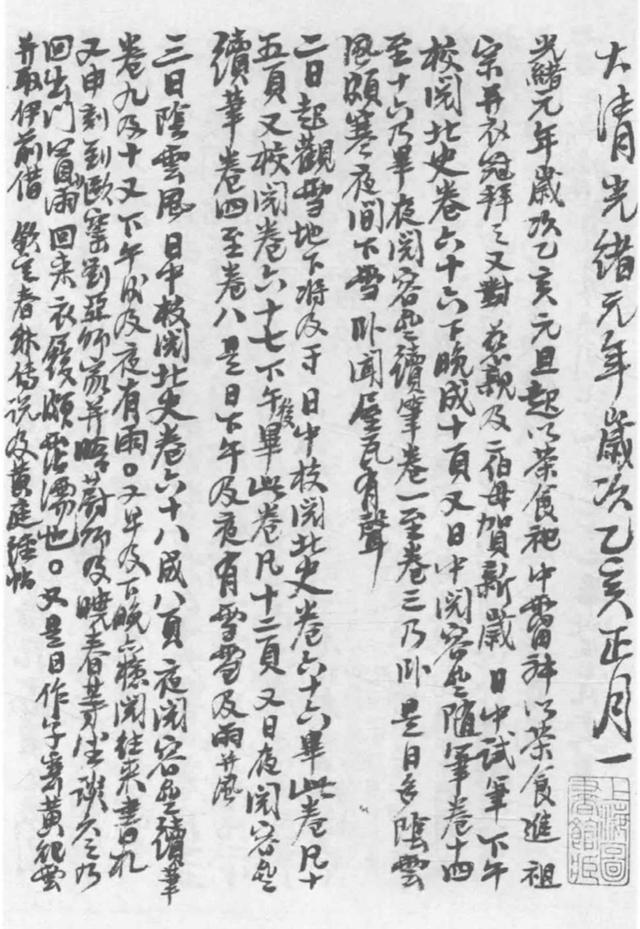 大清光緒元年歲次乙亥正月一
光緒元年歲次乙亥元旦起以茶食祀中霤神以茶食進 祖
宗并衣冠拜之又對 慈親及二伯母賀新歲 日中試筆下午
校閱北史卷六十六下晚成十頁又日中閱容齋隨筆卷十四
至十六乃畢夜閱容齋續筆卷一至卷三乃卧是日多陰雲
風頗寒夜間下雪卧聞屋瓦有聲
二日起觀雪地下將及寸日中校閱北史卷六十六畢此卷凡十
五頁又校閱卷六十七下午後畢此卷凡十二頁又日夜閱容齋
續筆卷四至卷八是日下午及夜有雪雪及雨并風
三日陰雲風日中校閱北史卷六十八成八頁夜閱容齋續筆
卷九及十又下午後及夜有雨。又早及下晚檢閱往來書札
又申刻到 劉亞師家并晤 師及曉春等坐談久之乃
回出門冒雨回來衣履頗霑濡也。又是日作字寄黃 雲
并取伊前借 欽定春秋傳說及黃庭經帖
上海圖書館藏